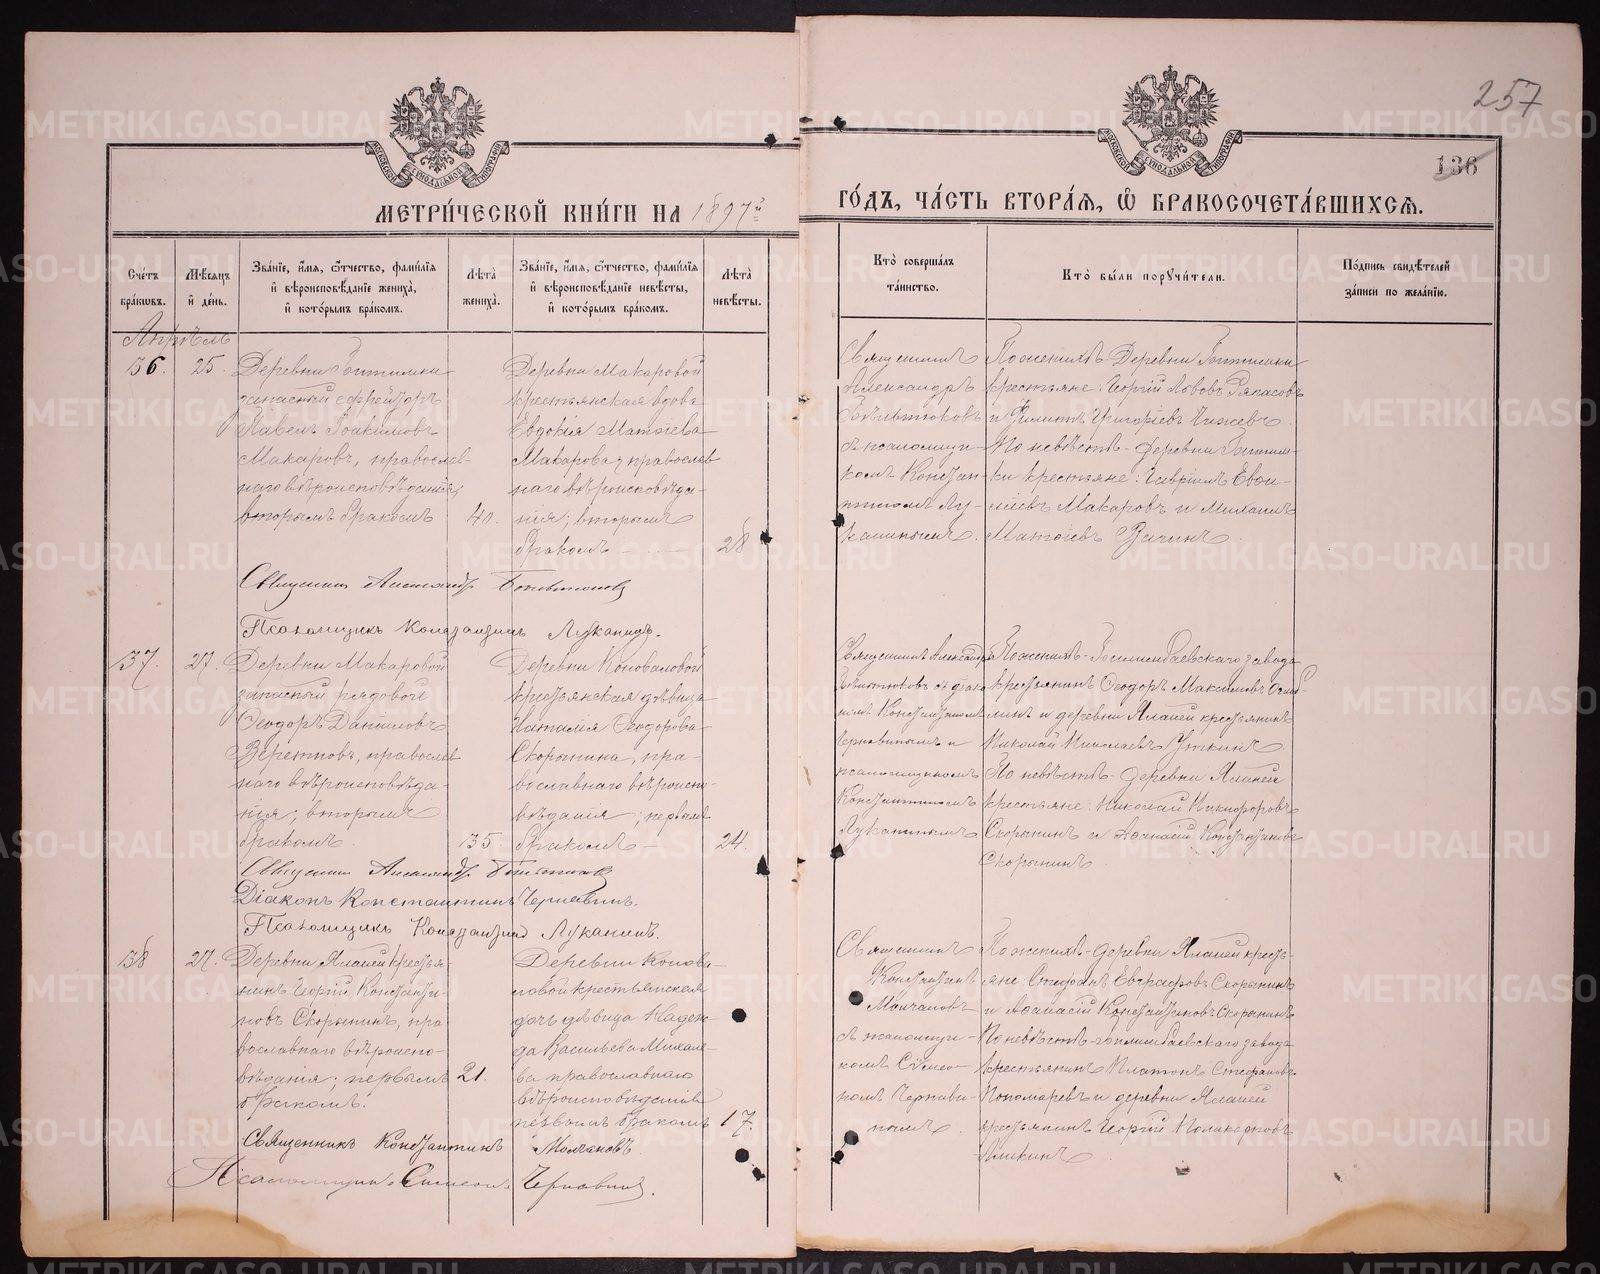 257
136
МЕТРИ́ЧЕСКОЙ КНИ́ГИ НА 1897й
ГО́ДЪ, ЧА́СТЬ ВТОРА́Я, Ѡ БРАКОСОЧЕТА́ВШИХСЯ.
Сче́тъ бра́кωвъ.
Мѣ́сяцъ и де́нь.
Зва́нїе, и́мя, ѻ́тчество, фами́лїя и вѣроисповѣ́данїе жениха̀, и кото́рымъ бра́комъ.
Лѣта̀ жениха̀.
Зва́нїе, и́мя, ѻ́тчество, фами́лїя и вѣроисповѣ́данїе невѣ́сты, и кото́рымъ бра́комъ.
Лѣта̀ невѣ́сты.
Кто̀ соверша́лъ та́инство.
Кто̀ бы́ли поручи́тели.
По́дпись свидѣ́телей за́писи по жела́нїю.
Апрѣль
36.
25.
Деревни
запасный ефрейторъ
Павелъ Іоакимовъ
Макаровъ, православ-
наго вѣроисповѣданія,
вторымъ бракомъ
Деревни Макаровой
крестьянская вдова
Евдокія Матѳіева
Макарова, православ
наго вѣроисповѣда-
нія; вторымъ
бракомъ
28
Священникъ
Александръ
съ псаломщи-
комъ Констан-
тиномъ Лу-
канинымъ.
По женихѣ Деревни
крестьяне: Георгій
и Филиппъ Григоріевъ
По невѣстѣ - Деревни
ки крестьяне: Гавріилъ
Макаровъ и Михаилъ
Матѳіевъ
Священникъ Александръ
Псаломщикъ Константинъ Луканинъ.
37.
27.
Деревни Макаровой
запасный рядовой
Ѳеодоръ Даніиловъ
православ
наго вѣроисповѣда-
нія; вторымъ
бракомъ
35.
Деревни Коноваловой
крестьянская дѣвица
Наталія Ѳеодорова
Скорынина, пра-
вославнаго вѣроиспо-
вѣданія; первымъ
бракомъ
24.
Священникъ Александръ
съ діако
номъ Константиномъ
Чернавинымъ и
псаломщикомъ
Константиномъ
Луканинымъ
По женихѣ - Билимбаевскаго завода
крестьянинъ Ѳеодоръ Максимовъ
и деревни Яланей крестьянинъ
Николай Николаевъ Уткинъ
По невѣстѣ - деревни Яланей
крестьяне: Николай Никифоровъ
Скорынинъ и Аѳанасій Константиновъ
Скорынинъ.
Священникъ Александръ
Діаконъ Константинъ Чернавинъ.
Псаломщикъ Константинъ Луканинъ.
38
27.
Деревни Яланей крестья-
нинъ Георгій Константи-
новъ Скорынинъ, пра
вославнаго вѣроиспо-
вѣданія; первымъ
бракомъ.
21.
Деревни Конова-
ловой крестьянская
дочь дѣвица Надеж-
да Васильева Михале-
ва православнаго
вѣроисповѣданія
первымъ бракомъ
17.
Священникъ
Константинъ
Молчановъ
съ псаломщи-
комъ Сѵмео-
номъ Чернави-
нымъ.
По женихѣ - деревни Яланей кресть-
яне Стефанъ Евграфовъ Скорынинъ
и Аѳанасій Константиновъ Скорынинъ
По невѣстѣ - Билимбаевскаго завода
крестьянинъ Платонъ Стефановъ
Пономаревъ и деревни Яланей
крестьянинъ Георгій Поликарповъ
Священникъ Константинъ Молчановъ
Псаломщикъ Симеонъ Чернавинъ.
METRIKI.GASO-URAL.RU